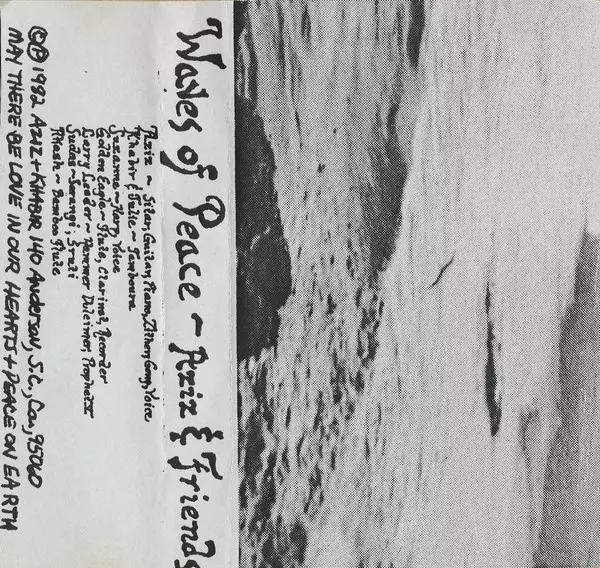 Waves of Peace ~ Aziz & Friends
Aziz ~ Sitar, Guitar, Piano, Zither, Gong, Voice
Khabir & Julie ~ Tamboura
Suzanne ~ Harp, Voice
Golden Eagle ~ Flute, Clarinet, Recorder
Larry Snader ~ Hammer Dulcimer, Prophet V
Sudas ~ Sarangi, Sruti
Akash ~ Bamboo Flute
©℗ 1982 AZIZ + KHABIR 140 Anderson, S.C., Ca., 95060
MAY THERE BE LOVE IN OUR HEARTS + PEACE ON EARTH